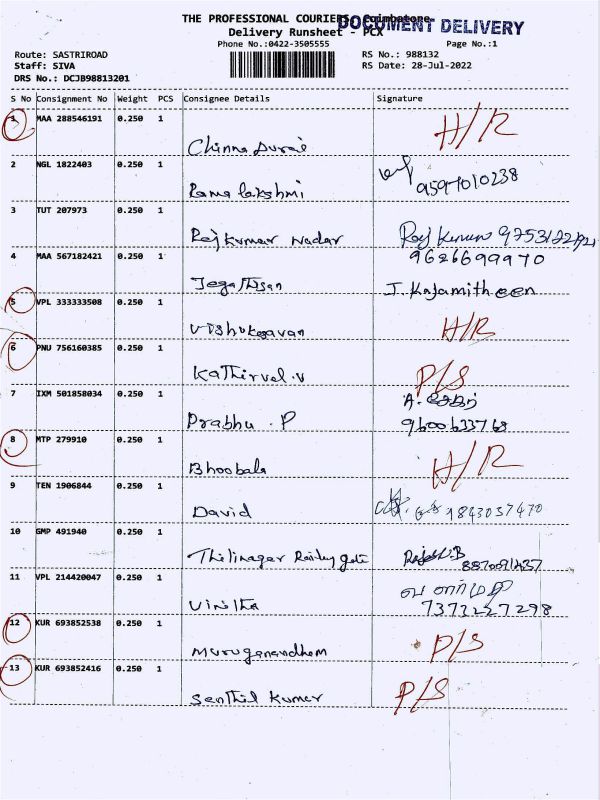 THE PROFESSIONAL COURIERS, Coimbatore
DOCUMENT DELIVERY
Delivery Runsheet - PCX
Phone No.:0422-3505555
Page No.:1
Route: SASTRIROAD
RS No.: 988132
Staff: SIVA
RS Date: 28-Jul-2022
DRS No.: DCJB98813201
S No Consignment No Weight PCS Consignee Details Signature
1 MAA 288546191 0.250 1 H/R
Chinna Durai
2 NGL 1822403 0.250 1
Rama lakshmi
3 TUT 207973 0.250 1
Rajkumar Nadar Raj Kumar
4 MAA 567182421 0.250 1 9626699970
Jegathisan J. Kajamitheen
5 VPL 333333508 0.250 1 H/R
Vishukesavan
6 PNU 756160385 0.250 1
Kathirvel.V P/S
7 IXM 501858034 0.250 1 A. சேகர்
Prabhu . P 9600633768
8 MTP 279910 0.250 1 H/R
Bhoobala
9 TEN 1906844 0.250 1
David 9843037470
10 GMP 491940 0.250 1
Thilinagar Railey gate
11 VPL 214420047 0.250 1 வளர்மதி
Vinitha 7373227298
12 KUR 693852538 0.250 1 P/S
Muruganandham
13 KUR 693852416 0.250 1 P/S
Senthil Kumar